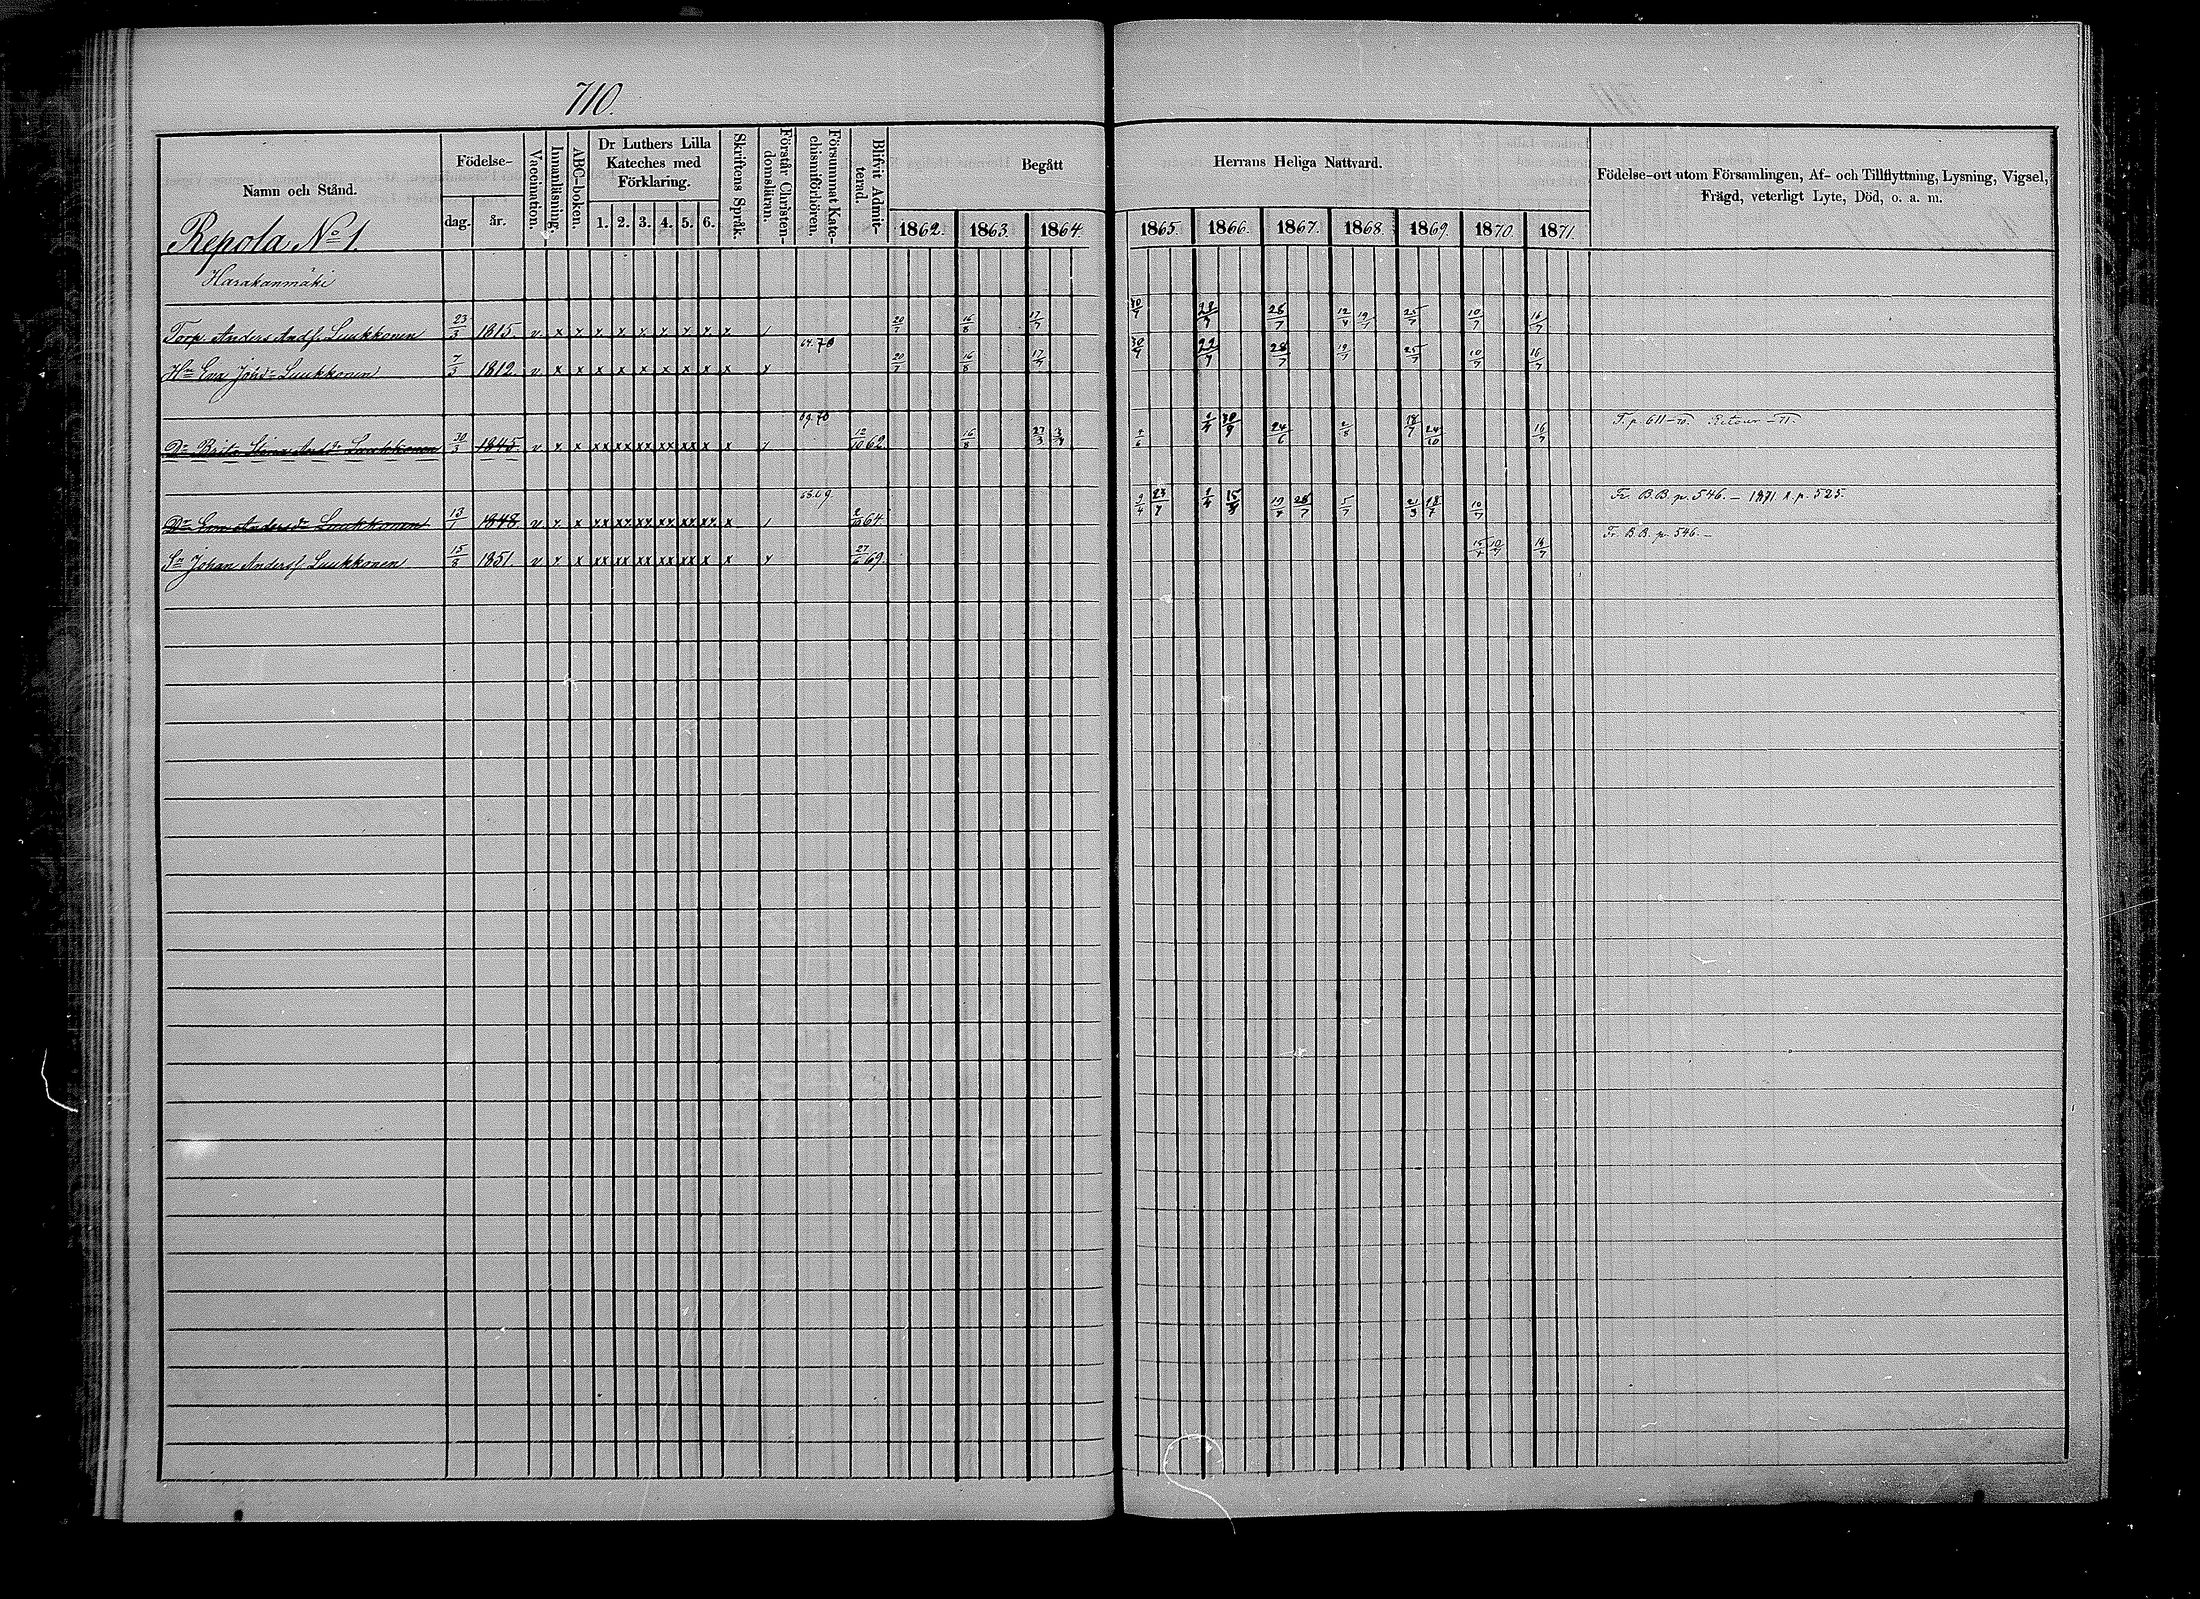 710.
Namn och Stånd.
Födelse-
dag.
år.
Vaccination.
Innanläsning.
ABC-boken.
Dr Luthers Lilla
Kateches med
Förklaring.
1. 2. 3. 4. 5. 6.
Skriftens Språk.
Förstår Christen-
domsläran.
Försummat Kate-
chismiförhören.
Blifvit Admit-
terad.
Begått
1862. 1863. 1864.
Herrans Heliga Nattvard.
1865. 1866. 1867. 1868. 1869. 1870. 1871.
Födelse-ort utom Församlingen, Af- och Tillflyttning, Lysning, Vigsel,
Frägd, veterligt Lyte, Död, o. a. m.
Repola No 1
Harakanmäki
Torp. Anders Andsf. Luukkonen 23/3 1815. v x x x x x x x x x 20/7 16/8 17/7 28/7 12/4 19/7 25/7 10/7 16/7
64. 70
Hu Eva Johsdr Luukkonen 7/3 1812. v x x x x x x x x x 20/7 16/8 17/7 28/7 19/7 25/7 10/7 16/7
69. 70
Dr Brita Stina Andsdr Luukkonen 30/3 1845. v x x xx xx xx xx xx x x 12/10 62. 16/8 27/3 24/6 2/8 18/7 24/10 16/7 T. p. 611-70. Retour -71.
Dr Eva Andersdr Luukkonen 13/1 1848 v x x xx xx xx xx xx xx x 2/10 64. 28/7 5/7 21/3 18/7 10/7 Fr. B.B. p. 546. - 1871 t. p. 525.
Sn Johan Andersf. Luukkonen 15/8 1851. v x x xx xx xx xx xx x x 27/6 69. Fr. B.B. p. 546. -